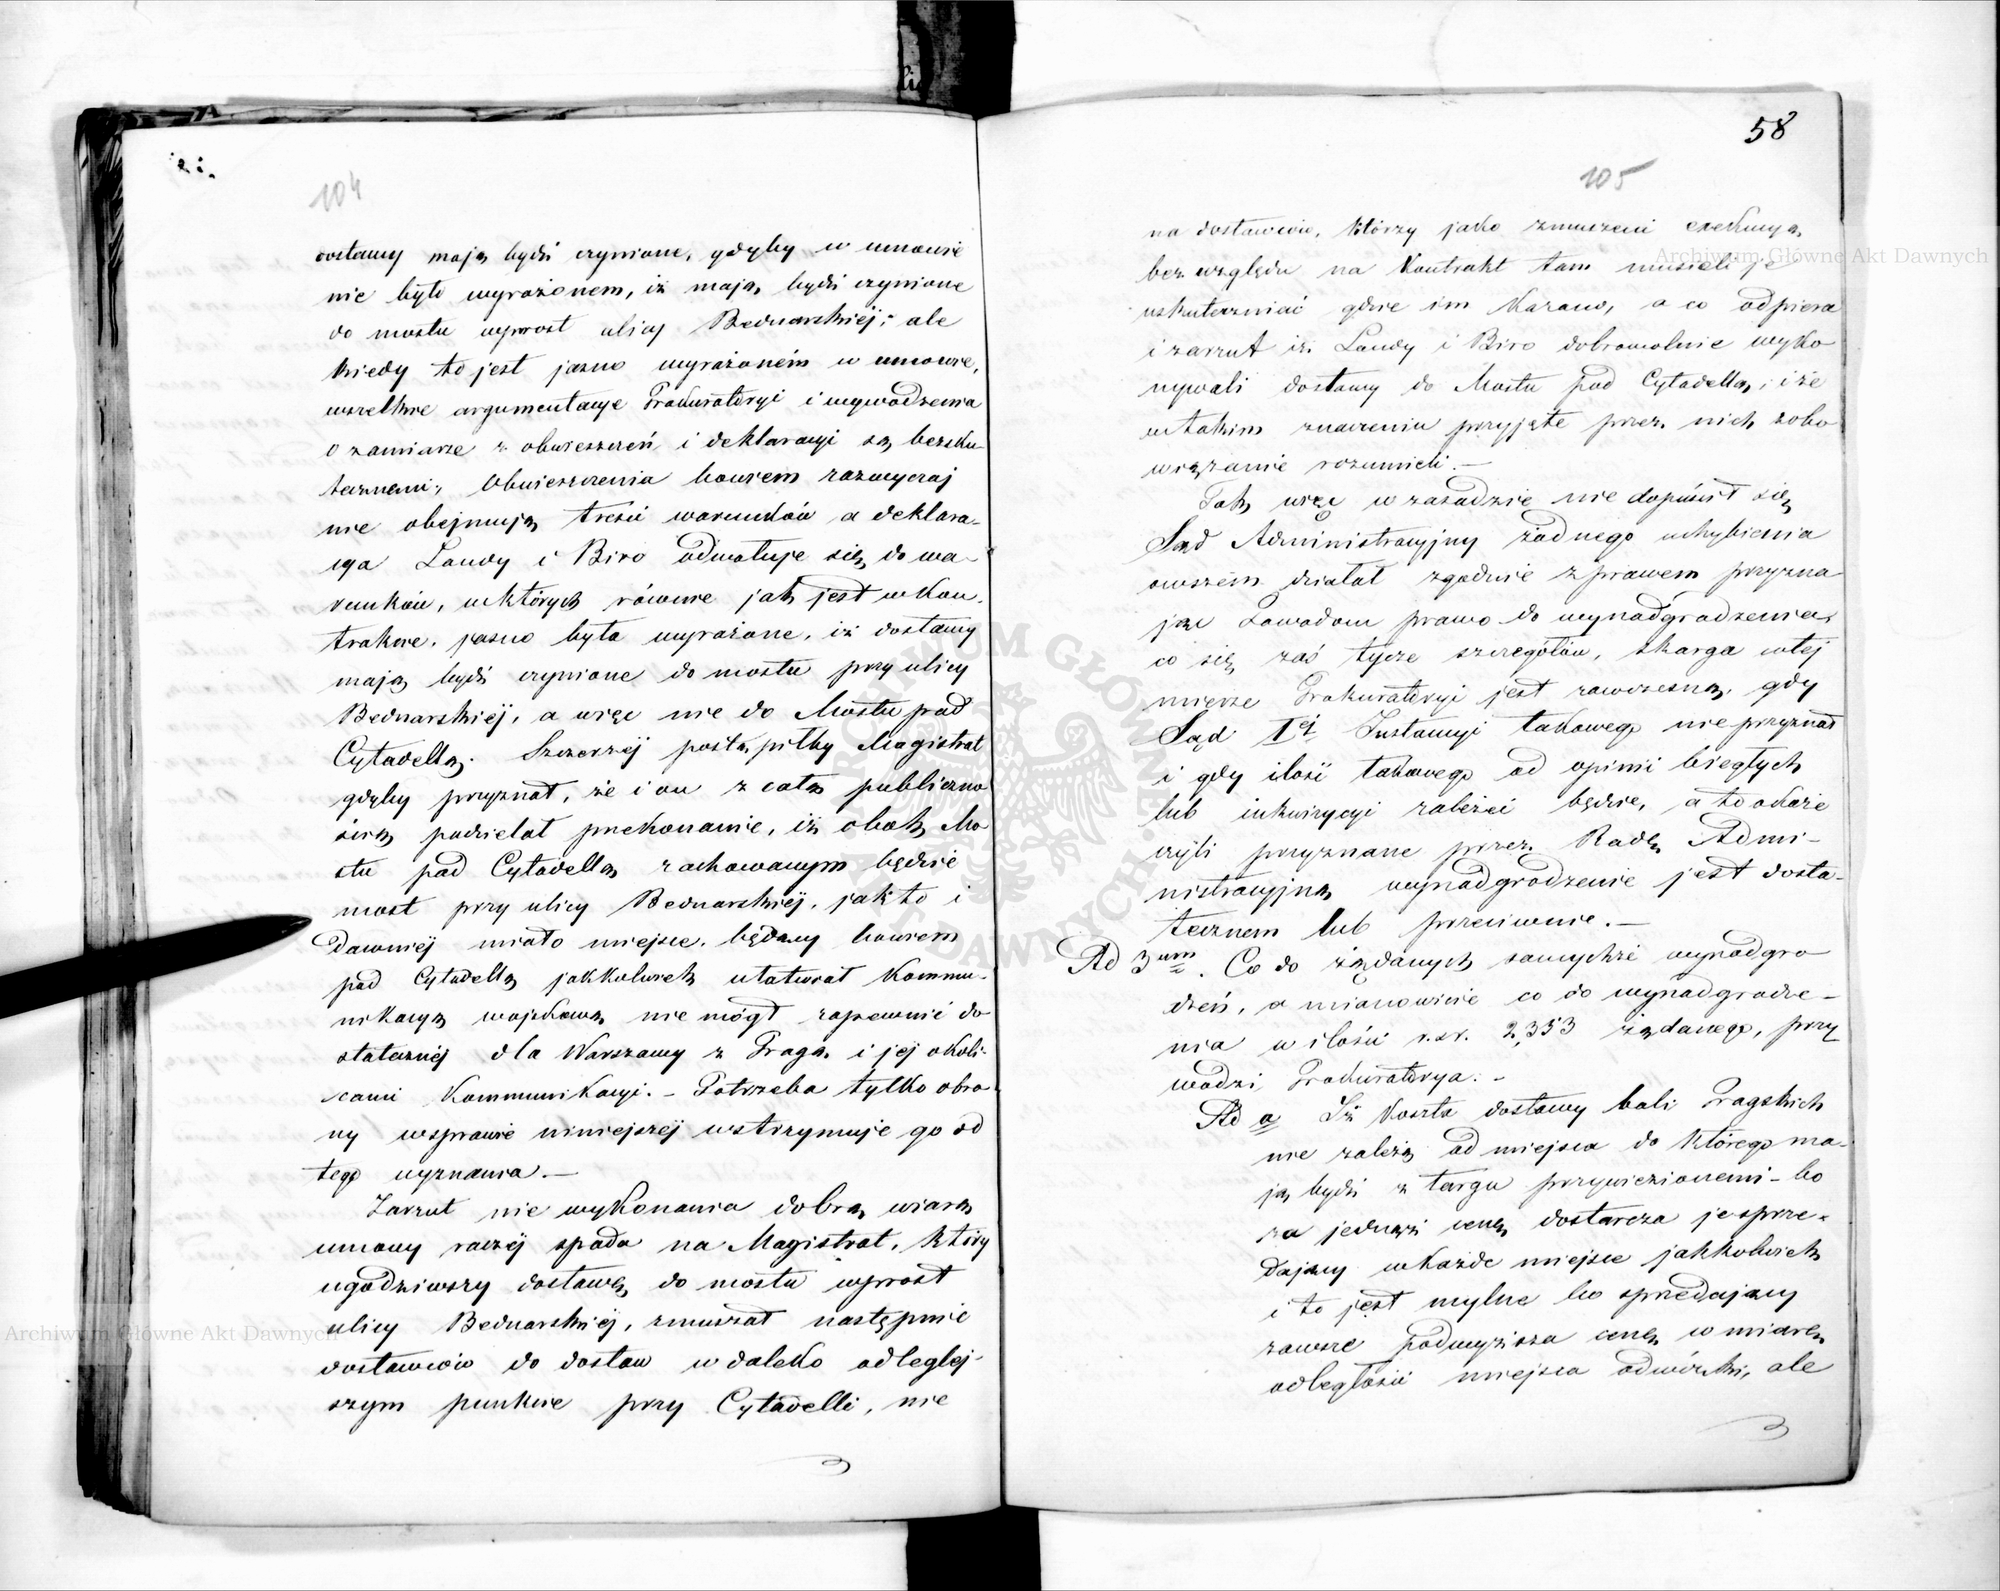 104
dostawy mają bydź czynione, gdyby w umowie
nie było wyrażonem, iż mają bydź czynione
do mostu wprost ulicy Bednarskiéj; ale
kiedy to jest jasno wyrażoném w umowie,
wszelkie argumentacye Prokuratoryi i wywodzenia
o zamiarze z obwieszczeń i deklaracyi są bezsku-
tecznemi; Obwieszczenia bowiem zazwyczaj
nie obejmują treści warunków a deklara-
cya Landy i Biro odwołuje się do wa-
runków, w których równie jak jest w kon-
trakcie, jasno było wyrażone, iż dostawy
mają bydź czynione do mostu przy ulicy
Bednarskiéj, a więc nie do Mostu pod
Cytadellą. Szczerzéj postąpiłby Magistrat
gdyby przyznał, że i on z całą publiczno
ścią podzielał przekonanie, iż obok Mo
stu pod Cytadellą zachowanym będzie
most przy ulicy Bednarskiéj, jak to i
dawniéj miało miejsce, będący bowiem
pod Cytadellą jakkolwiek ułatwiał Kommu-
nikacyą wojskową nie mógł zapewnić do
statecznéj dla Warszawy z Pragą i jej okoli-
cami Kommunikacyi. – Potrzeba tylko obro-
ny w sprawie niniejszéj wstrzymuje go od
tego wyznania. –
Zarzut nie wykonania dobrą wiarą
umowy raczéj spada na Magistrat, który
ugodziwszy dostawę do mostu wprost
ulicy Bednarskiéj, zmuszał następnie
dostawców do dostaw w daleko odleglej-
szym punkcie przy Cytadelli, nie
58
105
na dostawców, którzy jako zmuszeni exekucyą
bez względu na Kontrakt tam musieli je
uskuteczniać gdzie im Kazano, a co odpiera
i zarzut iż Landy i Biro dobrowolnie wyko
nywali dostawy do Mostu pod Cytadellą, i że
w takim znaczeniu przyjęte przez nich zobo
wiązanie rozumieli. –
Tak więc w zasadzie nie dopuścił się
Sąd Administracyjny żadnego uchybienia
owszem działał zgodnie z prawem przyzna
jąc Powodom prawo do wynadgrodzenia,
co się zaś tycze szczegółów, skarga w tej
mierze Prokuratoryi jest zawczesną, gdy
Sąd Iéj Instancyi takowego nie przyznał
i gdy ilość takowego od opinii biegłych
lub inkwizycyi zależeć będzie, a to okaże
czyli przyznane przez Radę Admi-
nistracyjną wynadgrodzenie jest dosta-
tecznem lub przeciwnie. –
Ad 3um. Co do żądanych samychże wynadgro
dzeń, a mianowicie co do wynadgrodze-
nia w ilości r.sr. 2,353 żądanego, przy
wodzi Prokuratorya. –
Ad a Iż koszta dostawy bali Pragskich
nie zależą od miejsca do którego ma-
ją bydź z targu przywiezionemi – bo
za jednąż cenę dostarcza je sprze-
dający w każde miejsce jakkolwiek
i to jest mylne bo sprzedający
zawsze podwyższa cenę w miarę
odległości miejsca odwózki, ale
Archiwum Główne Akt Dawnych
Archiwum Główne Akt Dawnych
ARCHIWUM GŁÓWNE AKT DAWNYCH